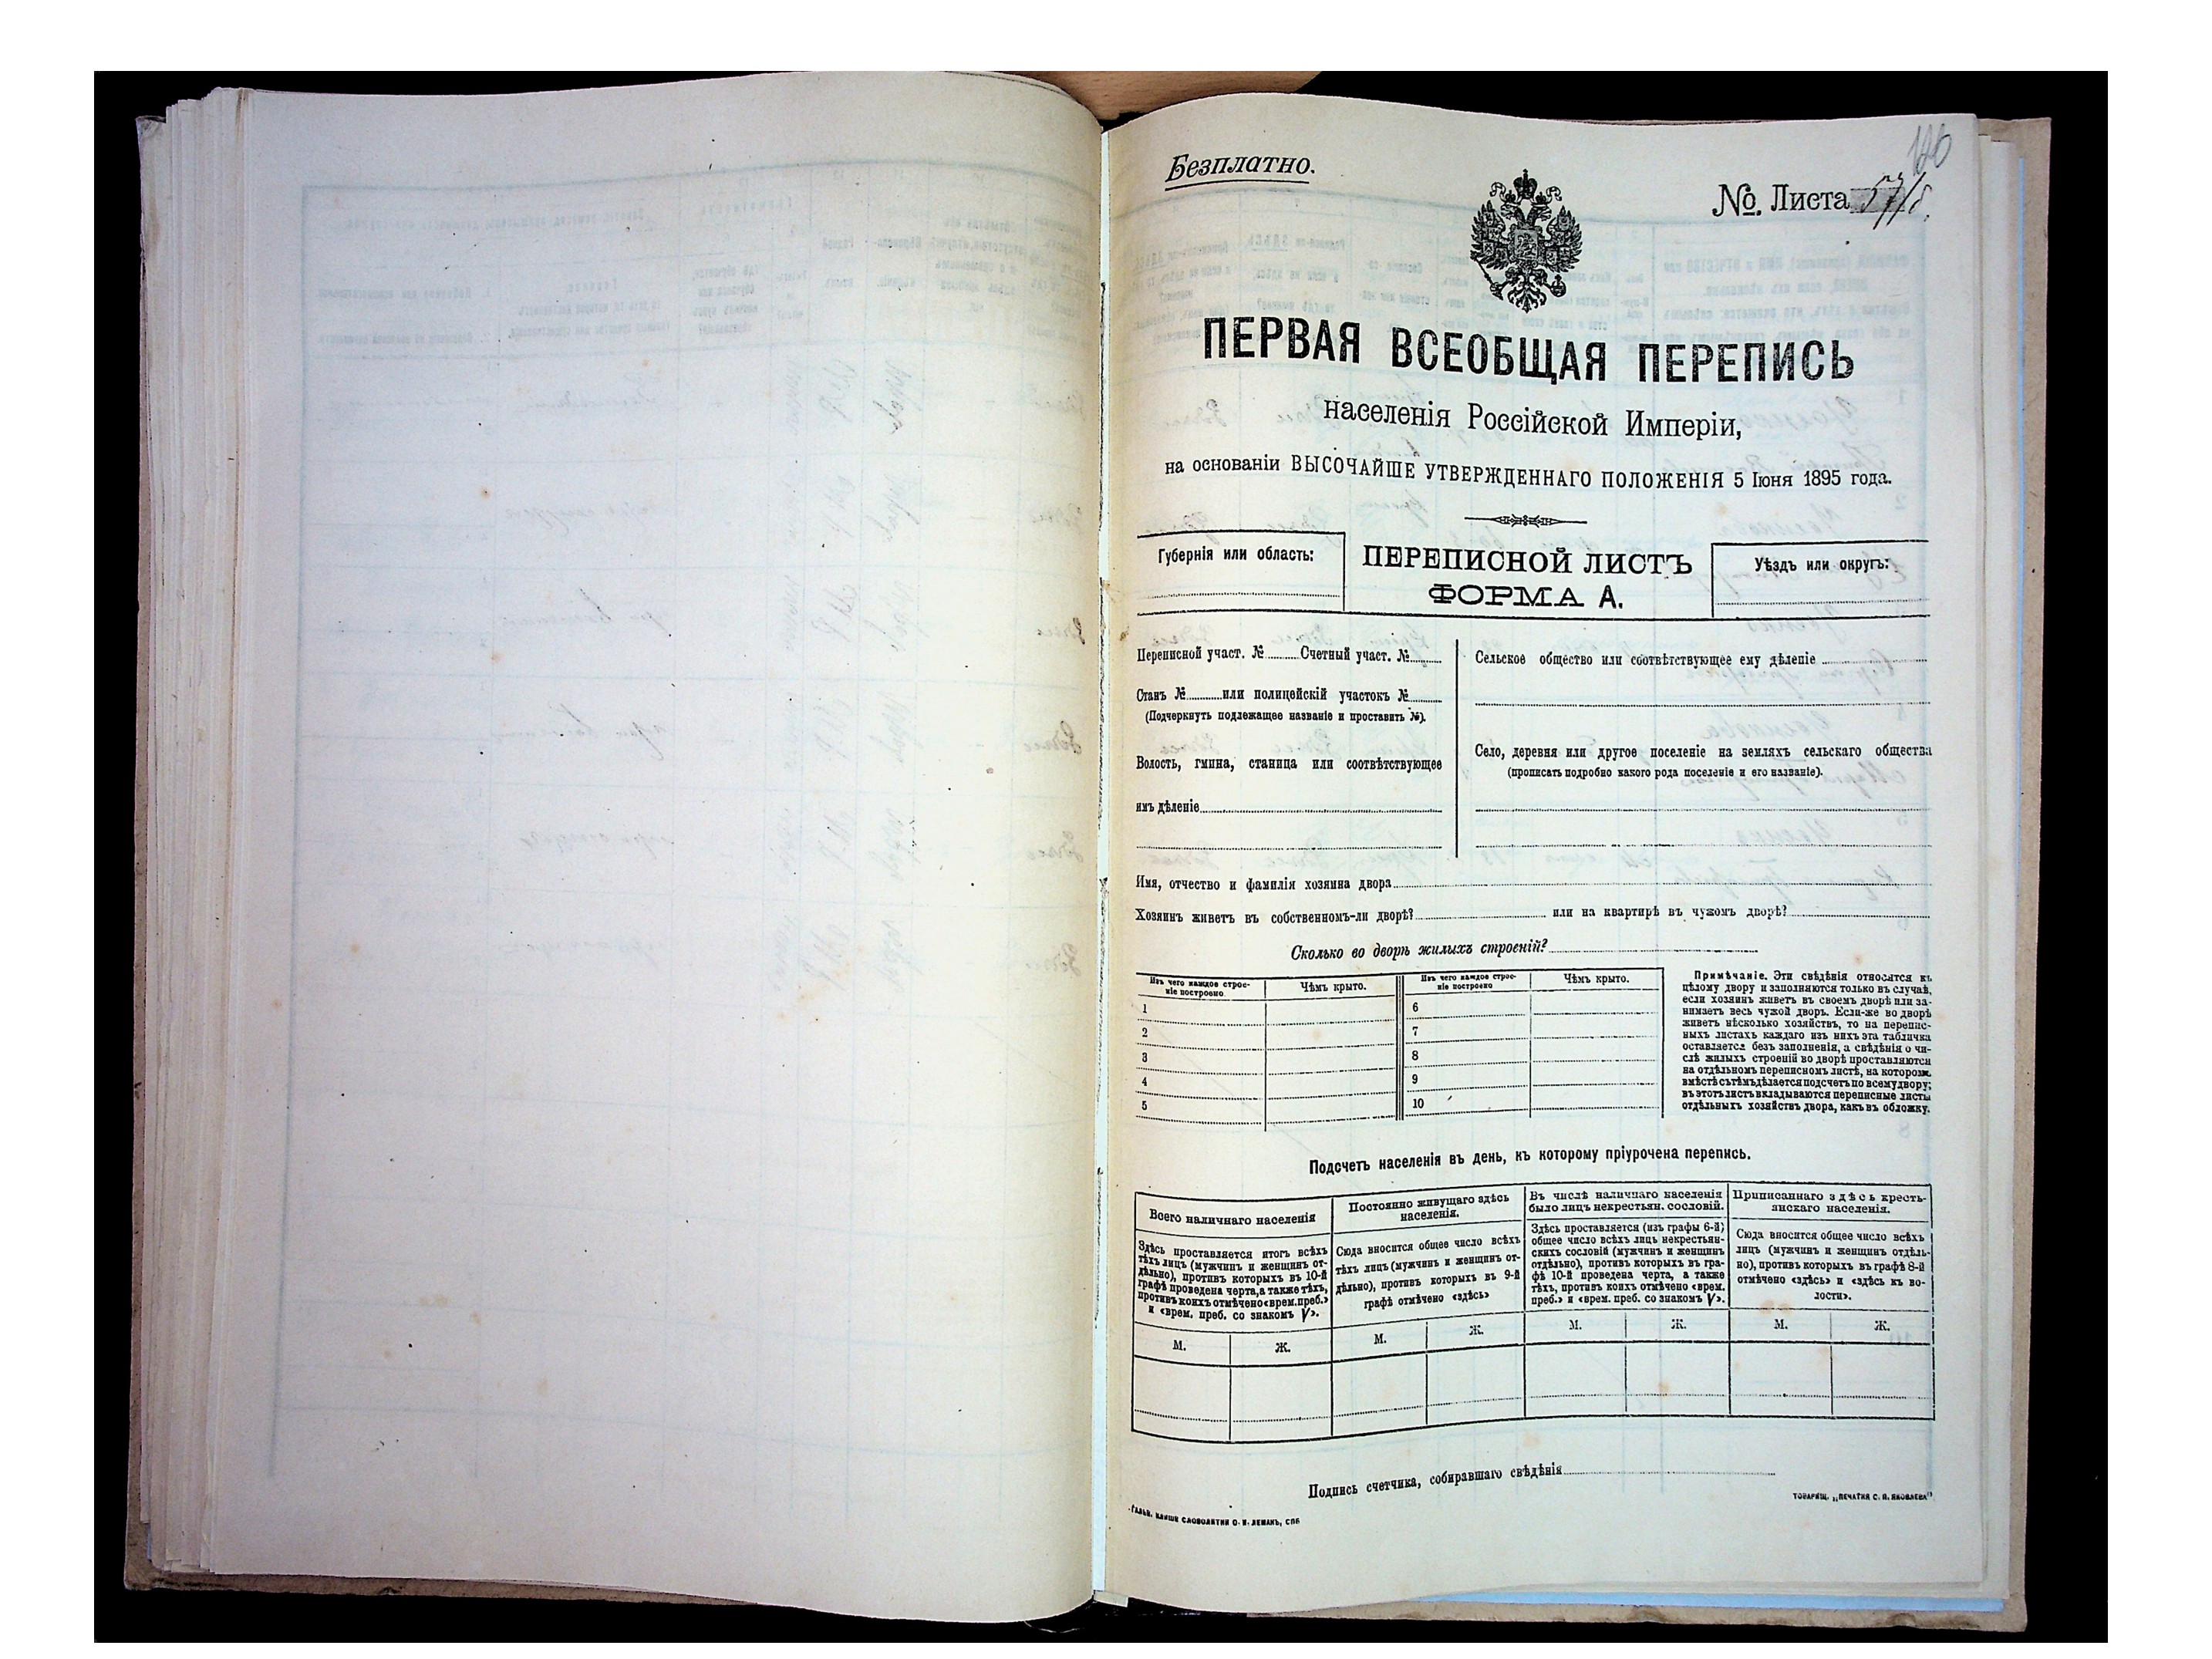 146
Безплатно.
№. Листа 57/8.
ПЕРВАЯ ВСЕОБЩАЯ ПЕРЕПИСЬ
населенія Россійской Имперіи,
на основаніи ВЫСОЧАЙШЕ УТВЕРЖДЕННАГО ПОЛОЖЕНІЯ 5 Іюня 1895 года.
Губернія или область:
ПЕРЕПИСНОЙ ЛИСТЪ
ФОРМА А.
Уѣздъ или округъ:
Переписной участ. № Счетный участ. №
Станъ № или полицейскій участокъ №
(Подчеркнуть подлежащее названіе и проставить №).
Волость, гмина, станица или соотвѣтствующее
имъ дѣленіе
Сельское общество или соотвѣтствующее ему дѣленіе
Село, деревня или другое поселеніе на земляхъ сельскаго общества
(прописать подробно какого рода поселеніе и его названіе).
Имя, отчество и фамилія хозяина двора
Хозяинъ живетъ въ собственномъ-ли дворѣ? или на квартирѣ въ чужомъ дворѣ?
Сколько во дворѣ жилыхъ строеній?
Изъ чего каждое строе-
ніе построено
Чѣмъ крыто.
Изъ чего каждое строе-
ніе построено
Чѣмъ крыто.
1
2
3
4
5
6
7
8
9
10
Примѣчаніе. Эти свѣдѣнія относятся къ
цѣлому двору и заполняются только въ случаѣ,
если хозяинъ живетъ въ своемъ дворѣ или за-
нимаетъ весь чужой дворъ. Если-же во дворѣ
живетъ нѣсколько хозяйствъ, то на перепис-
ныхъ листахъ каждаго изъ нихъ эта табличка
оставляется безъ заполненія, а свѣдѣнія о чи-
слѣ жилыхъ строеній во дворѣ проставляются
на отдѣльномъ переписномъ листѣ, на которомъ
вмѣстѣ съ тѣмъ дѣлается подсчетъ по всему двору;
въ этотъ листъ вкладываются переписные листы
отдѣльныхъ хозяйствъ двора, какъ въ обложку.
Подсчетъ населенія въ день, къ которому пріурочена перепись.
Всего наличнаго населенія
Здѣсь проставляется итогъ всѣхъ
тѣхъ лицъ (мужчинъ и женщинъ от-
дѣльно), противъ которыхъ въ 10-й
графѣ проведена черта, а также тѣхъ,
противъ коихъ отмѣчено «врем. преб.»
и «врем. преб. со знакомъ V».
М. Ж.
Постоянно живущаго здѣсь
населенія.
Сюда вносится общее число всѣхъ
тѣхъ лицъ (мужчинъ и женщинъ от-
дѣльно), противъ которыхъ въ 9-й
графѣ отмѣчено «здѣсь»
М. Ж.
Въ числѣ наличнаго населенія
было лицъ некрестьян. сословій.
Здѣсь проставляется (изъ графы 6-й)
общее число всѣхъ лицъ некрестьян-
скихъ сословій (мужчинъ и женщинъ
отдѣльно), противъ которыхъ въ гра-
фѣ 10-й проведена черта, а также
тѣхъ, противъ коихъ отмѣчено «врем.
преб.» и «врем. преб. со знакомъ V».
М. Ж.
Приписаннаго здѣсь кресть-
янскаго населенія.
Сюда вносится общее число всѣхъ
лицъ (мужчинъ и женщинъ отдѣль-
но), противъ которыхъ въ графѣ 8-й
отмѣчено «здѣсь» и «здѣсь къ во-
лости».
М. Ж.
Подпись счетчика, собиравшаго свѣдѣнія
ГАЛЬВ. КЛИШЕ СЛОВОЛИТНИ О. И. ЛЕМАНЪ, СПБ
ТОВАРИЩ. „ПЕЧАТНЯ С. П. ЯКОВЛЕВА"